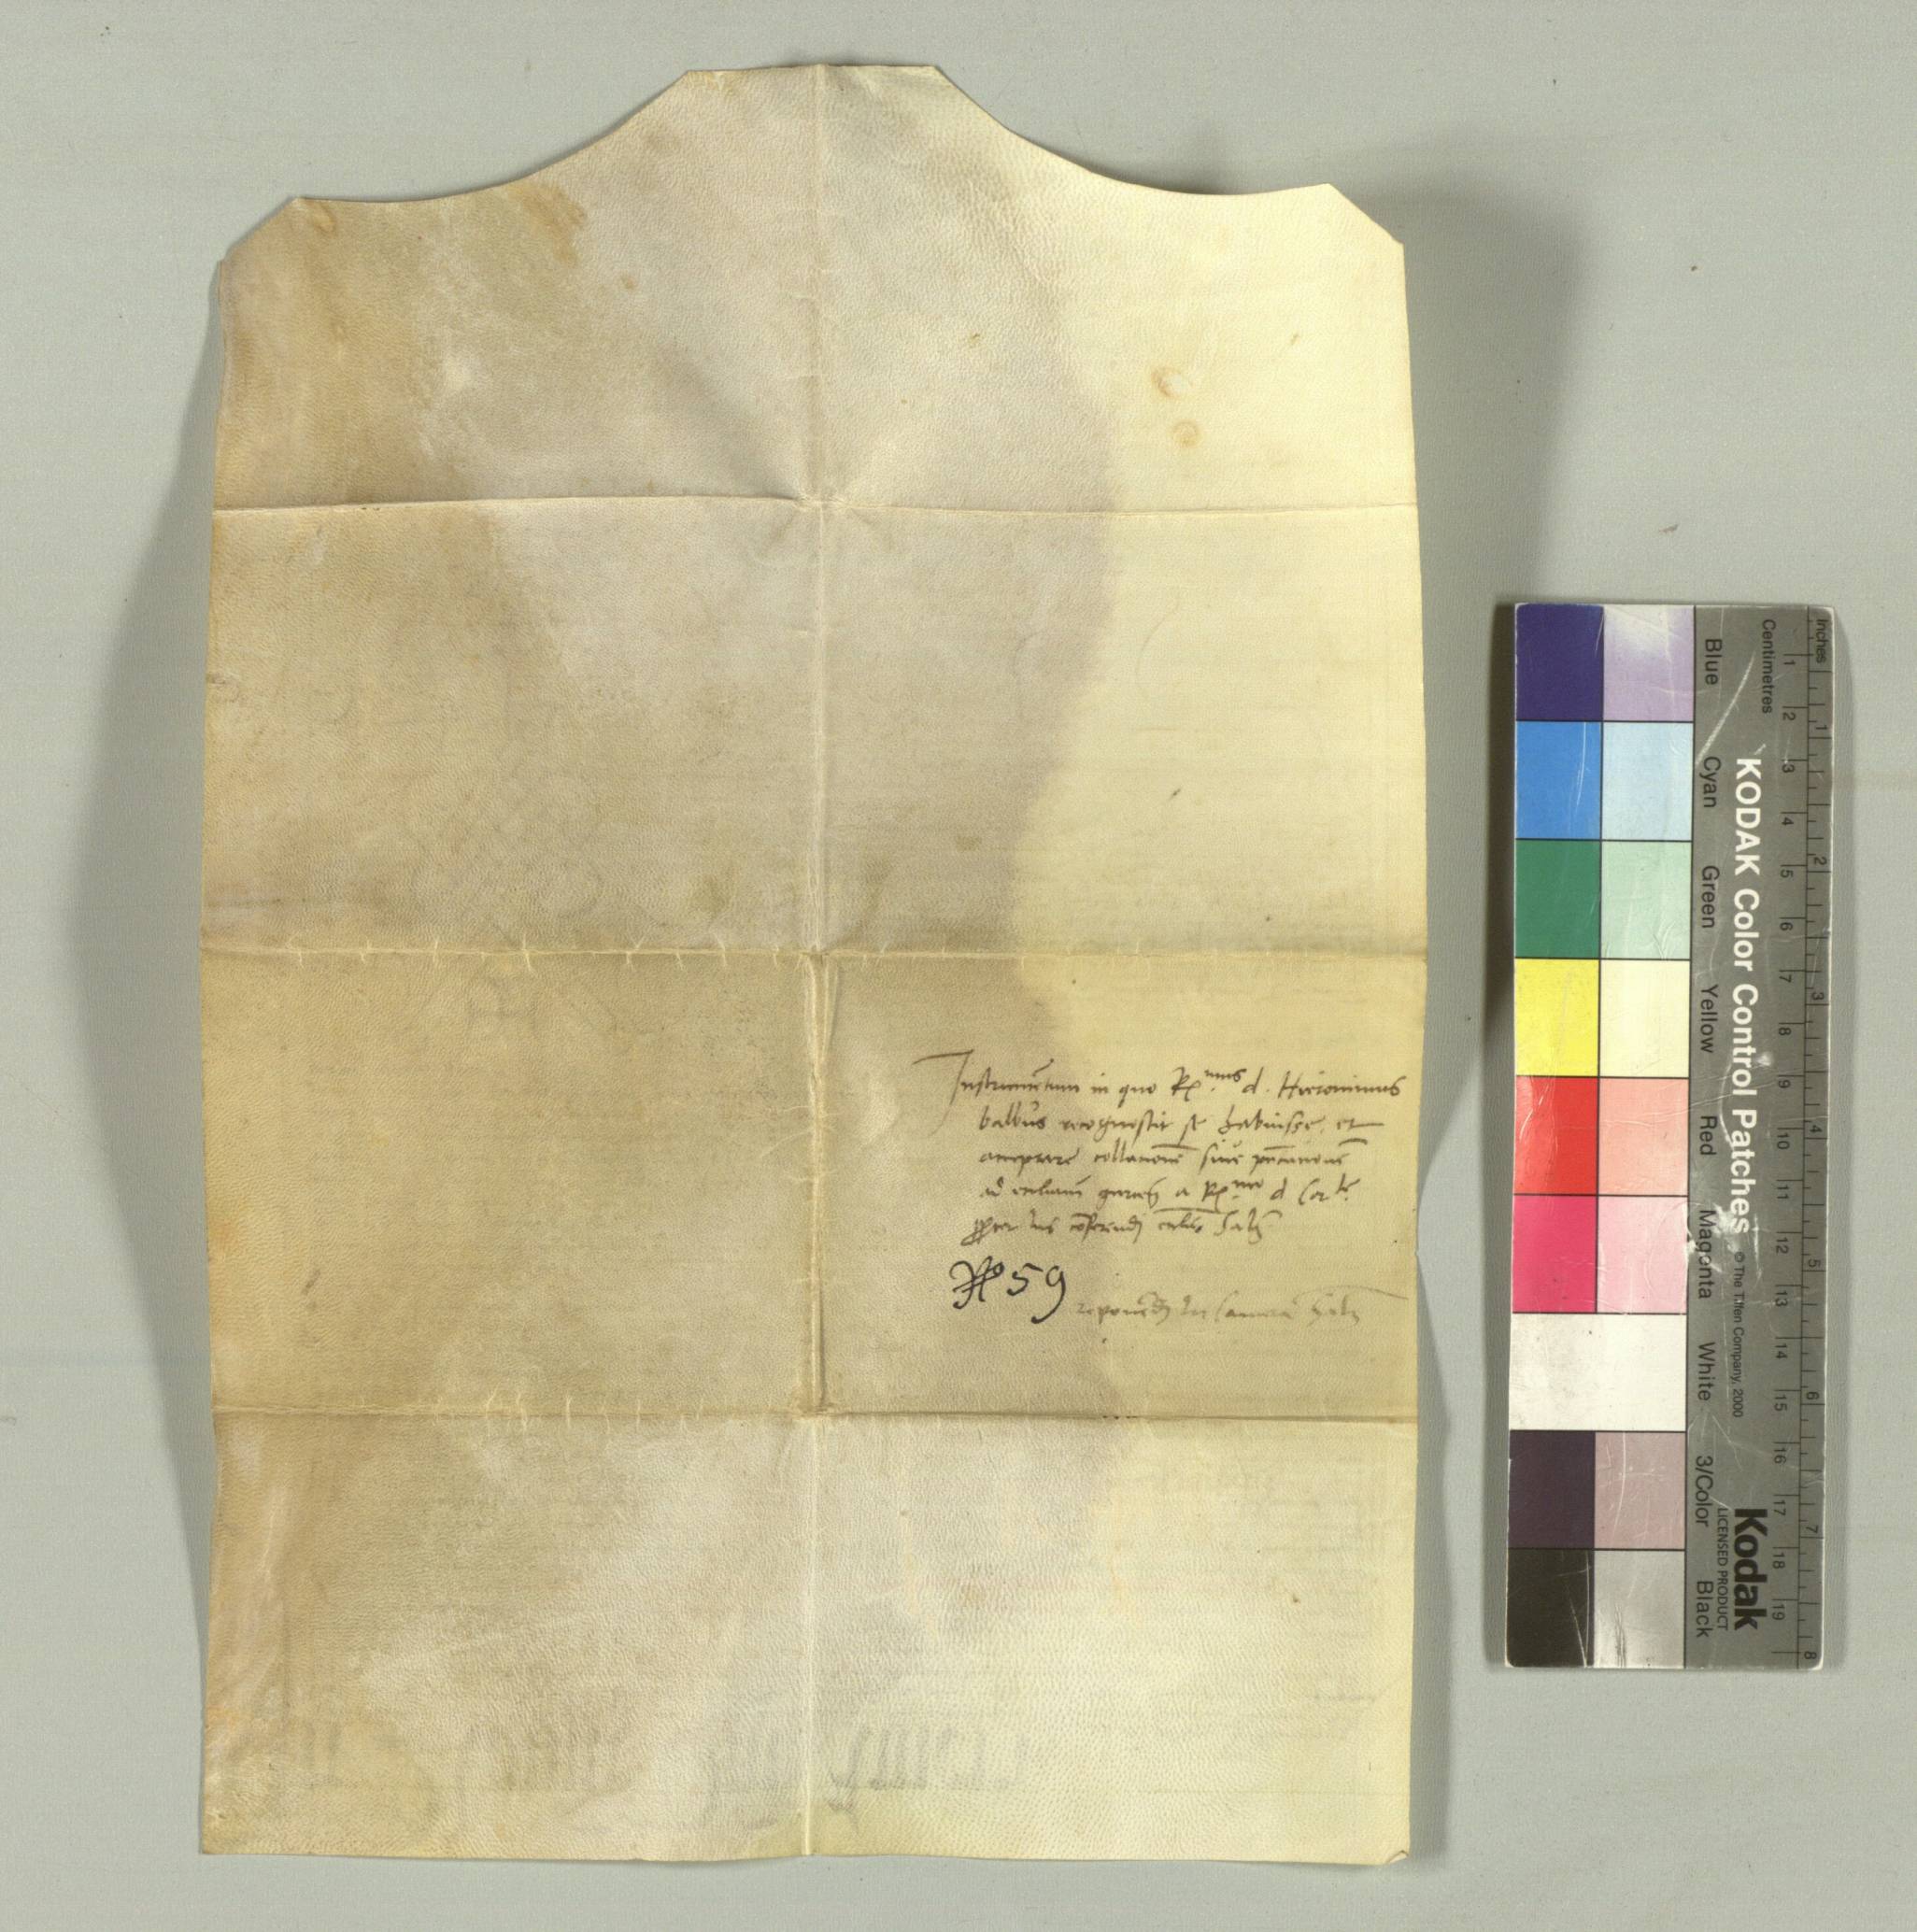 Instrumētum in quo R.mus d. Hieronimus
balbus recognoscit se habuisse, et
acceptare collationē sive
ad a R.mo d Car.le
ius cōferendi
No 59
reponēd in Camera
Inches
Centimetres
1 2 3 4 5 6 7 8
1 2 3 4 5 6 7 8 9 10 11 12 13 14 15 16 17 18 19
KODAK Color Control Patches © The Tiffen Company, 2000
Kodak
LICENSED PRODUCT
Blue Cyan Green Yellow Red Magenta White 3/Color Black